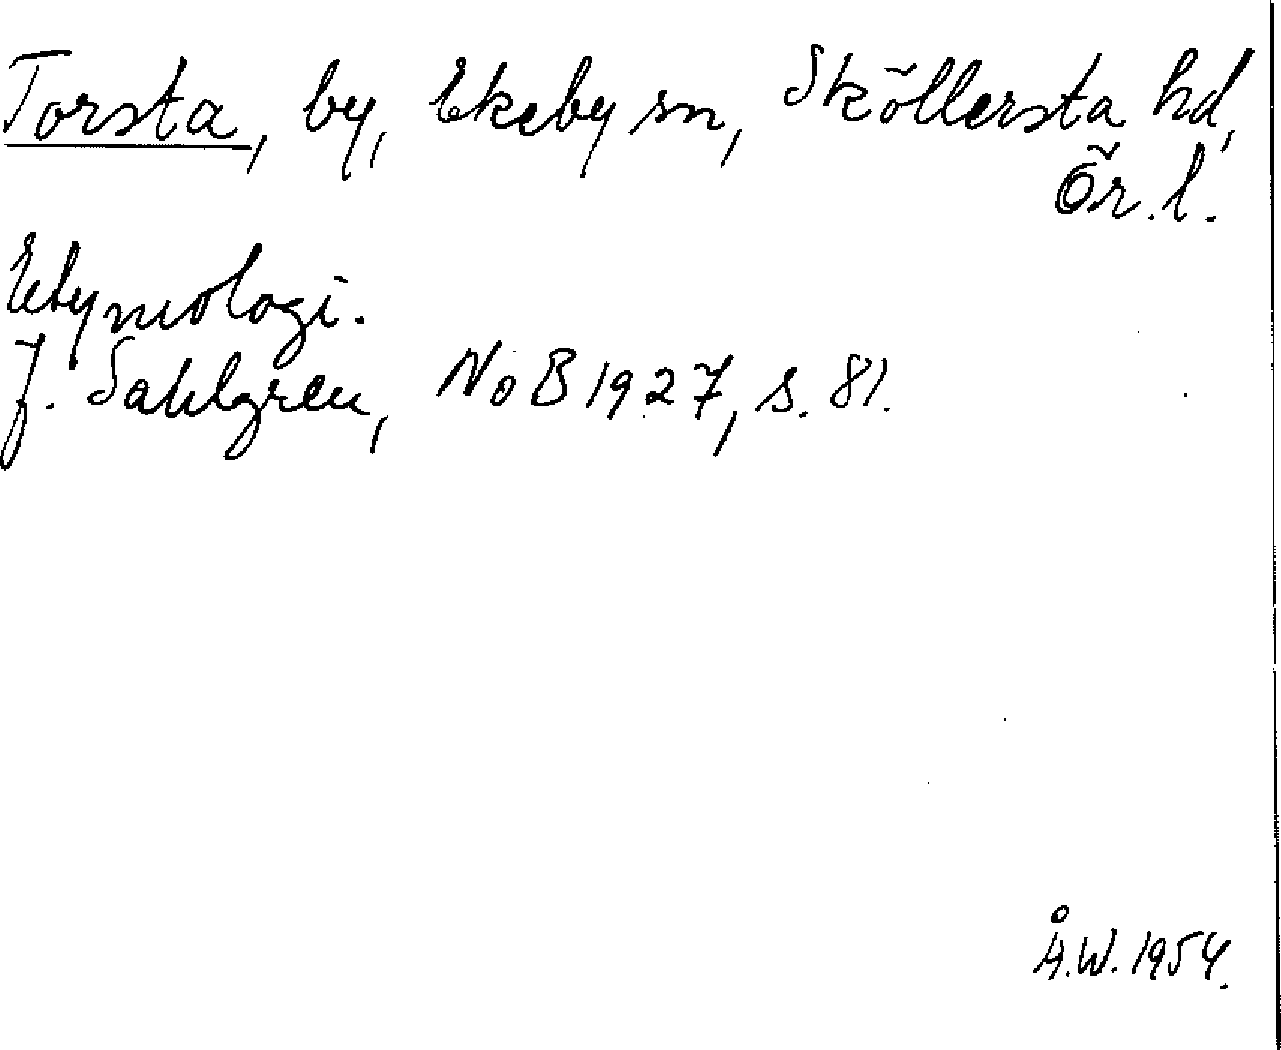 Torsta, by, Ekeby sn, Sköllersta hd,
Ör. l.
Etymologi.
J. Sahlgren, NoB 1927, s. 81.
Å.W. 1954.